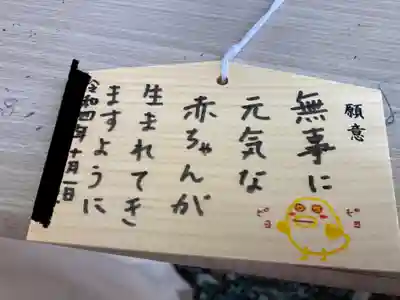 願意
無事に
元気な
赤ちゃんが
生まれてき
ますように
令和四年十月一日
ピヨ
ピヨ